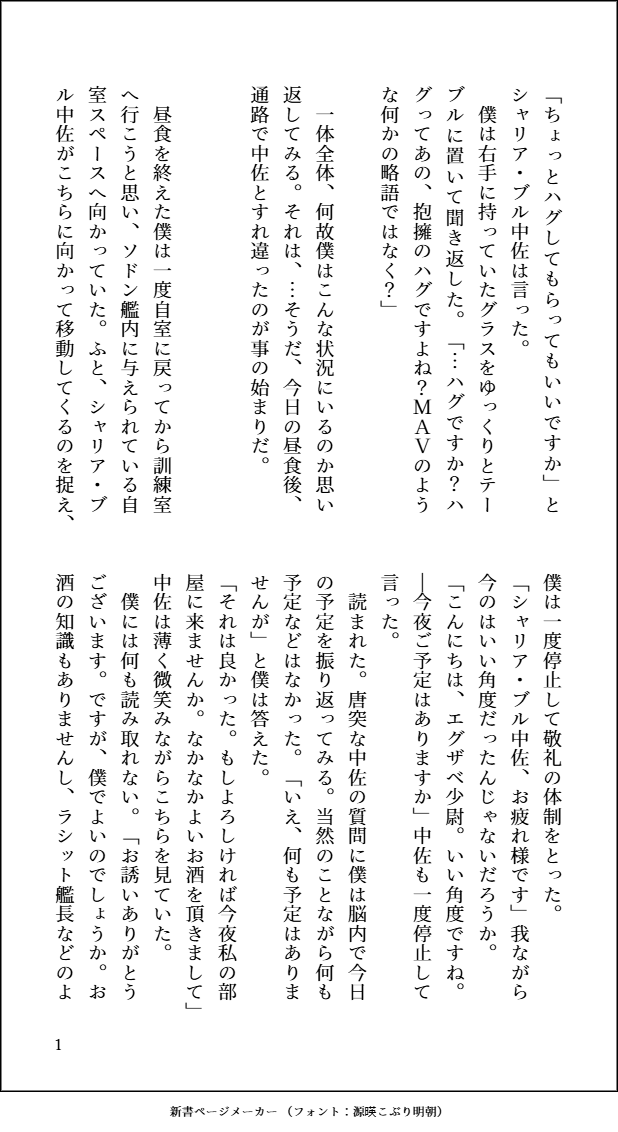 「ちょっとハグしてもらってもいいですか」と
シャリア・ブル中佐は言った。
　僕は右手に持っていたグラスをゆっくりとテー
ブルに置いて聞き返した。「…ハグですか？ハ
グってあの、抱擁のハグですよね？ＭＡＶのよう
な何かの略語ではなく？」
　一体全体、何故僕はこんな状況にいるのか思い
返してみる。それは、…そうだ、今日の昼食後、
通路で中佐とすれ違ったのが事の始まりだ。
　昼食を終えた僕は一度自室に戻ってから訓練室
へ行こうと思い、ソドン艦内に与えられている自
室スペースへ向かっていた。ふと、シャリア・ブ
ル中佐がこちらに向かって移動してくるのを捉え、
僕は一度停止して敬礼の体制をとった。
「シャリア・ブル中佐、お疲れ様です」我ながら
今のはいい角度だったんじゃないだろうか。
「こんにちは、エグザベ少尉。いい角度ですね。
―今夜ご予定はありますか」中佐も一度停止して
言った。
　読まれた。唐突な中佐の質問に僕は脳内で今日
の予定を振り返ってみる。当然のことながら何も
予定などはなかった。「いえ、何も予定はありま
せんが」と僕は答えた。
「それは良かった。もしよろしければ今夜私の部
屋に来ませんか。なかなかよいお酒を頂きまして」
中佐は薄く微笑みながらこちらを見ていた。
　僕には何も読み取れない。「お誘いありがとう
ございます。ですが、僕でよいのでしょうか。お
酒の知識もありませんし、ラシット艦長などのよ
1
新書ページメーカー（フォント：源暎こぶり明朝）